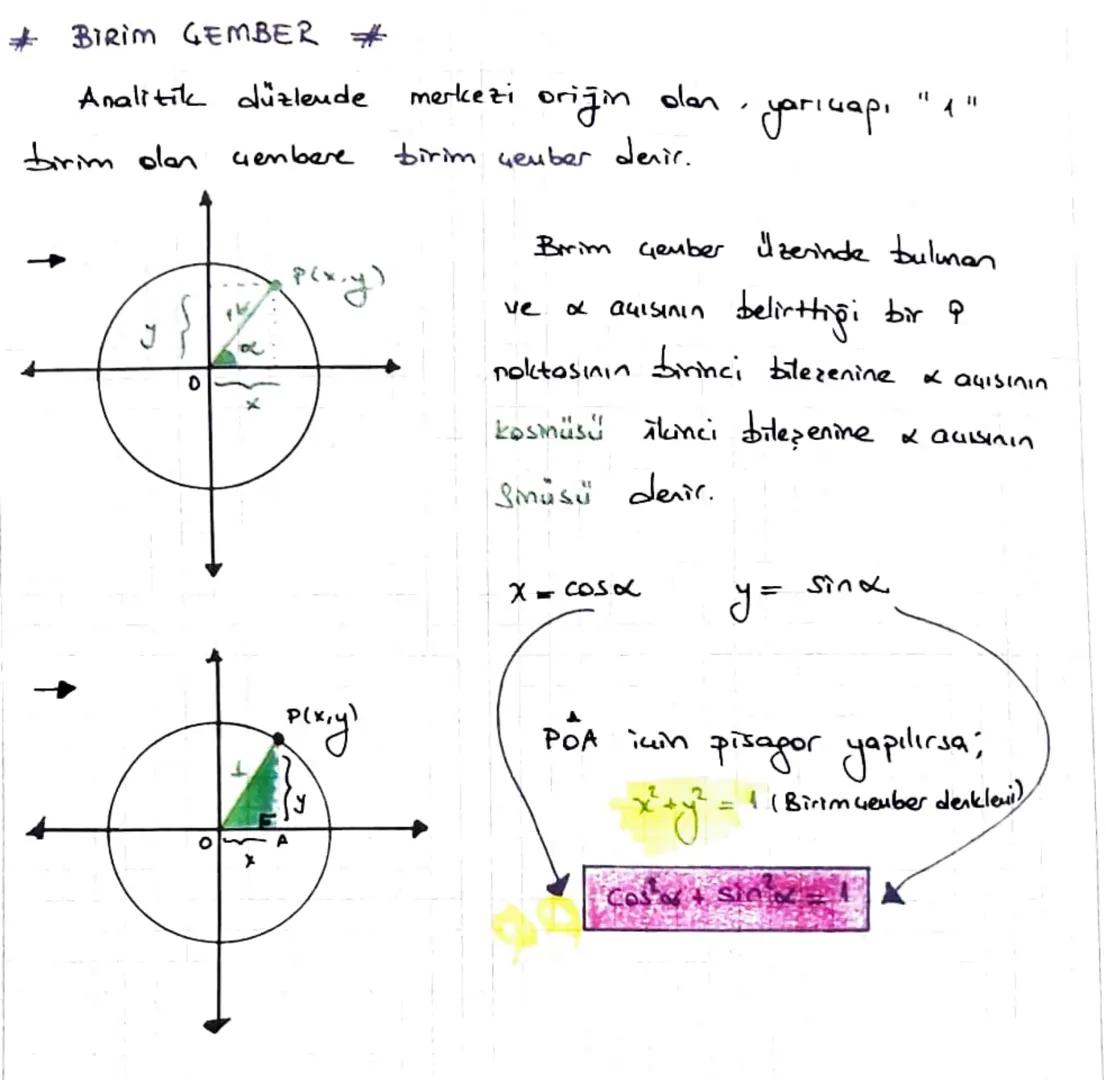 * BİRİM ÇEMBER *
Analitik düzlemde merkezi oriğin olan, yarıçapı "1"
birim olan çembere birim çember denir.
P(x,y)
y
α
O
x
Birim çember üzerinde bulunan
ve α açısının belirttiği bir P
noktasının birinci bileşenine α açısının
kosinüsü ikinci bileşenine α açısının
Sinüsü denir.
x = cosα y = sinα
P(x,y)
1
y
O
A
x
POA için pisagor yapılırsa;
x² + y² = 1 (Birim çember denklemi)
cos²α + sin²α = 1